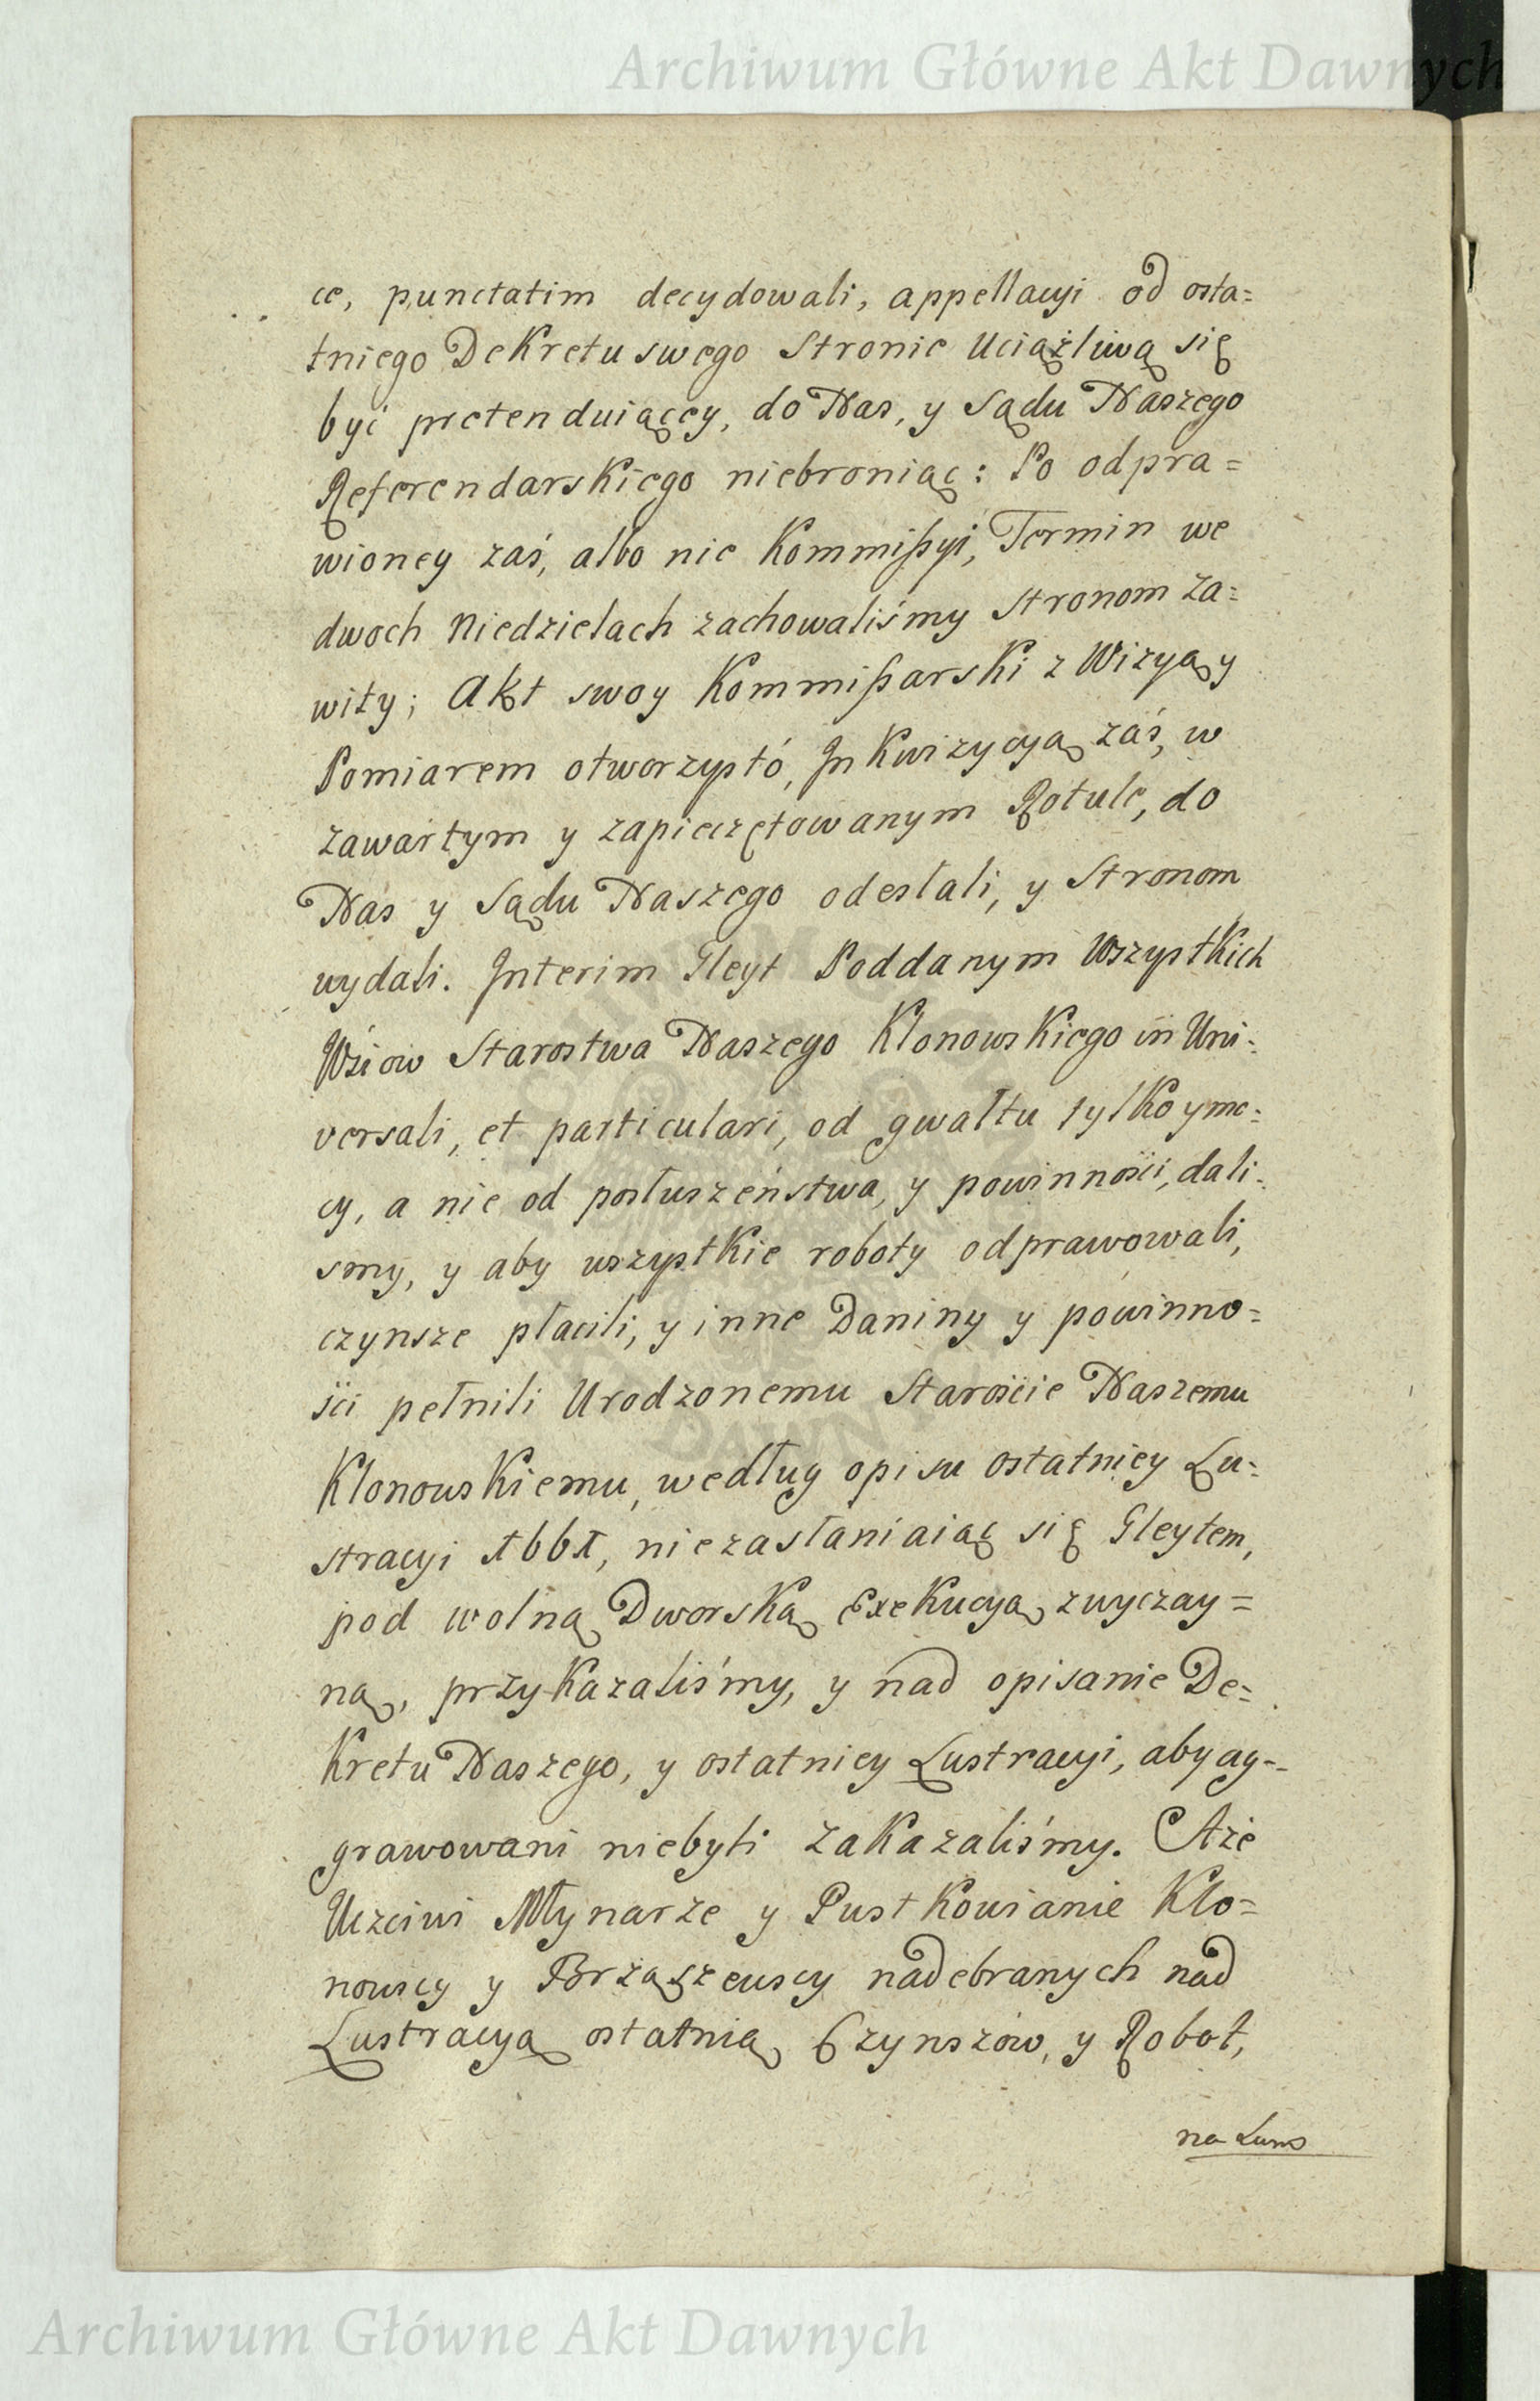 Archiwum Główne Akt Dawnych
ce, punctatim decydowali, appellacyi od osta=
tniego Dekretu swego Stronie Uciążliwą się
być pretenduiącey, do Nas, y Sądu Naszego
Referendarskiego niebroniąc: Po odpra=
wioney zaś, albo nie Kommißyi, Termin we
dwoch Niedzielach zachowaliśmy Stronom Za=
wity; Akt swoy Kommißarski z Wizyą y
Pomiarem otworzysto, Inkwizycyą zaś, w
zawartym y zapieczętowanym Rotule, do
Nas y Sądu Naszego odesłali, y Stronom
wydali. Interim Gleyt Poddanym Wszystkich
Wsiow Starostwa Naszego Klonowskiego in Uni=
versali, et particulari, od gwałtu tylko y mo=
cy, a nie od posłuszeństwa, y powinności, dali=
smy, y aby wszystkie roboty odprawowali,
czynsze płacili, y inne Daniny y powinno=
ści pełnili Urodzonemu Staroście Naszemu
Klonowskiemu, według opisu ostatniey Lu=
stracyi 1661, niezasłaniaiąc się Gleytem,
pod wolną Dworską Exekucyą zwyczay=
ną, przykazaliśmy, y nad opisanie De=
kretu Naszego, y ostatniey Lustracyi, aby ag=
grawowani niebyli zakazaliśmy. Aże
Uczciwi Młynarze y Pustkowianie Klo=
nowscy y Brząszewscy nadebranych nad
Lustracyą ostatnią Czynszow, y Robot,
na Summ
ARCHIWUM GŁÓWNE
AKT DAWNYCH
Archiwum Główne Akt Dawnych